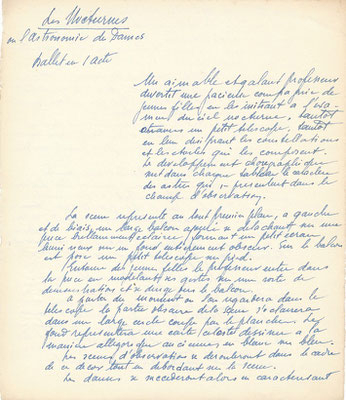 Les Nocturnes
ou l'Astronomie de Dames
Ballet en 1 acte
Un aimable et galant professeur
divertit une compagnie de
jeunes filles en les initiant à l'exa
men du ciel nocturne, tantôt
un petit télescope, tantôt
en leur les constellations
et les étoiles qui les composent
Le développement chorégraphique
suit dans chaque tableau le caractère
des astres qui se présentent dans le
champ d'observation.
La scène représente au tout premier plan, à gauche
et de biais, un large balcon appuyé et débouchant sur une
pièce brillamment éclairée formant un petit écran
lumineux sur un fond entièrement obscur. Sur le balcon
est posé un petit télescope sur pied.
Entouré des jeunes filles le professeur entre dans
la pièce en ses gestes sur une sorte de
démonstration et se dirige vers le balcon.
A partir du moment où l'on regardera dans le
télescope la partie obscure de la scène s'éclairera
dans un large cercle coupé par le plancher. Le
fond représentera une carte céleste dessinée à la
manière allégorique anciennes en blanc sur bleu.
Les scènes d'observation se dérouleront dans le cadre
de ce décor tout en débordant sur la scène.
Les danses se succéderont alors en caractérisant